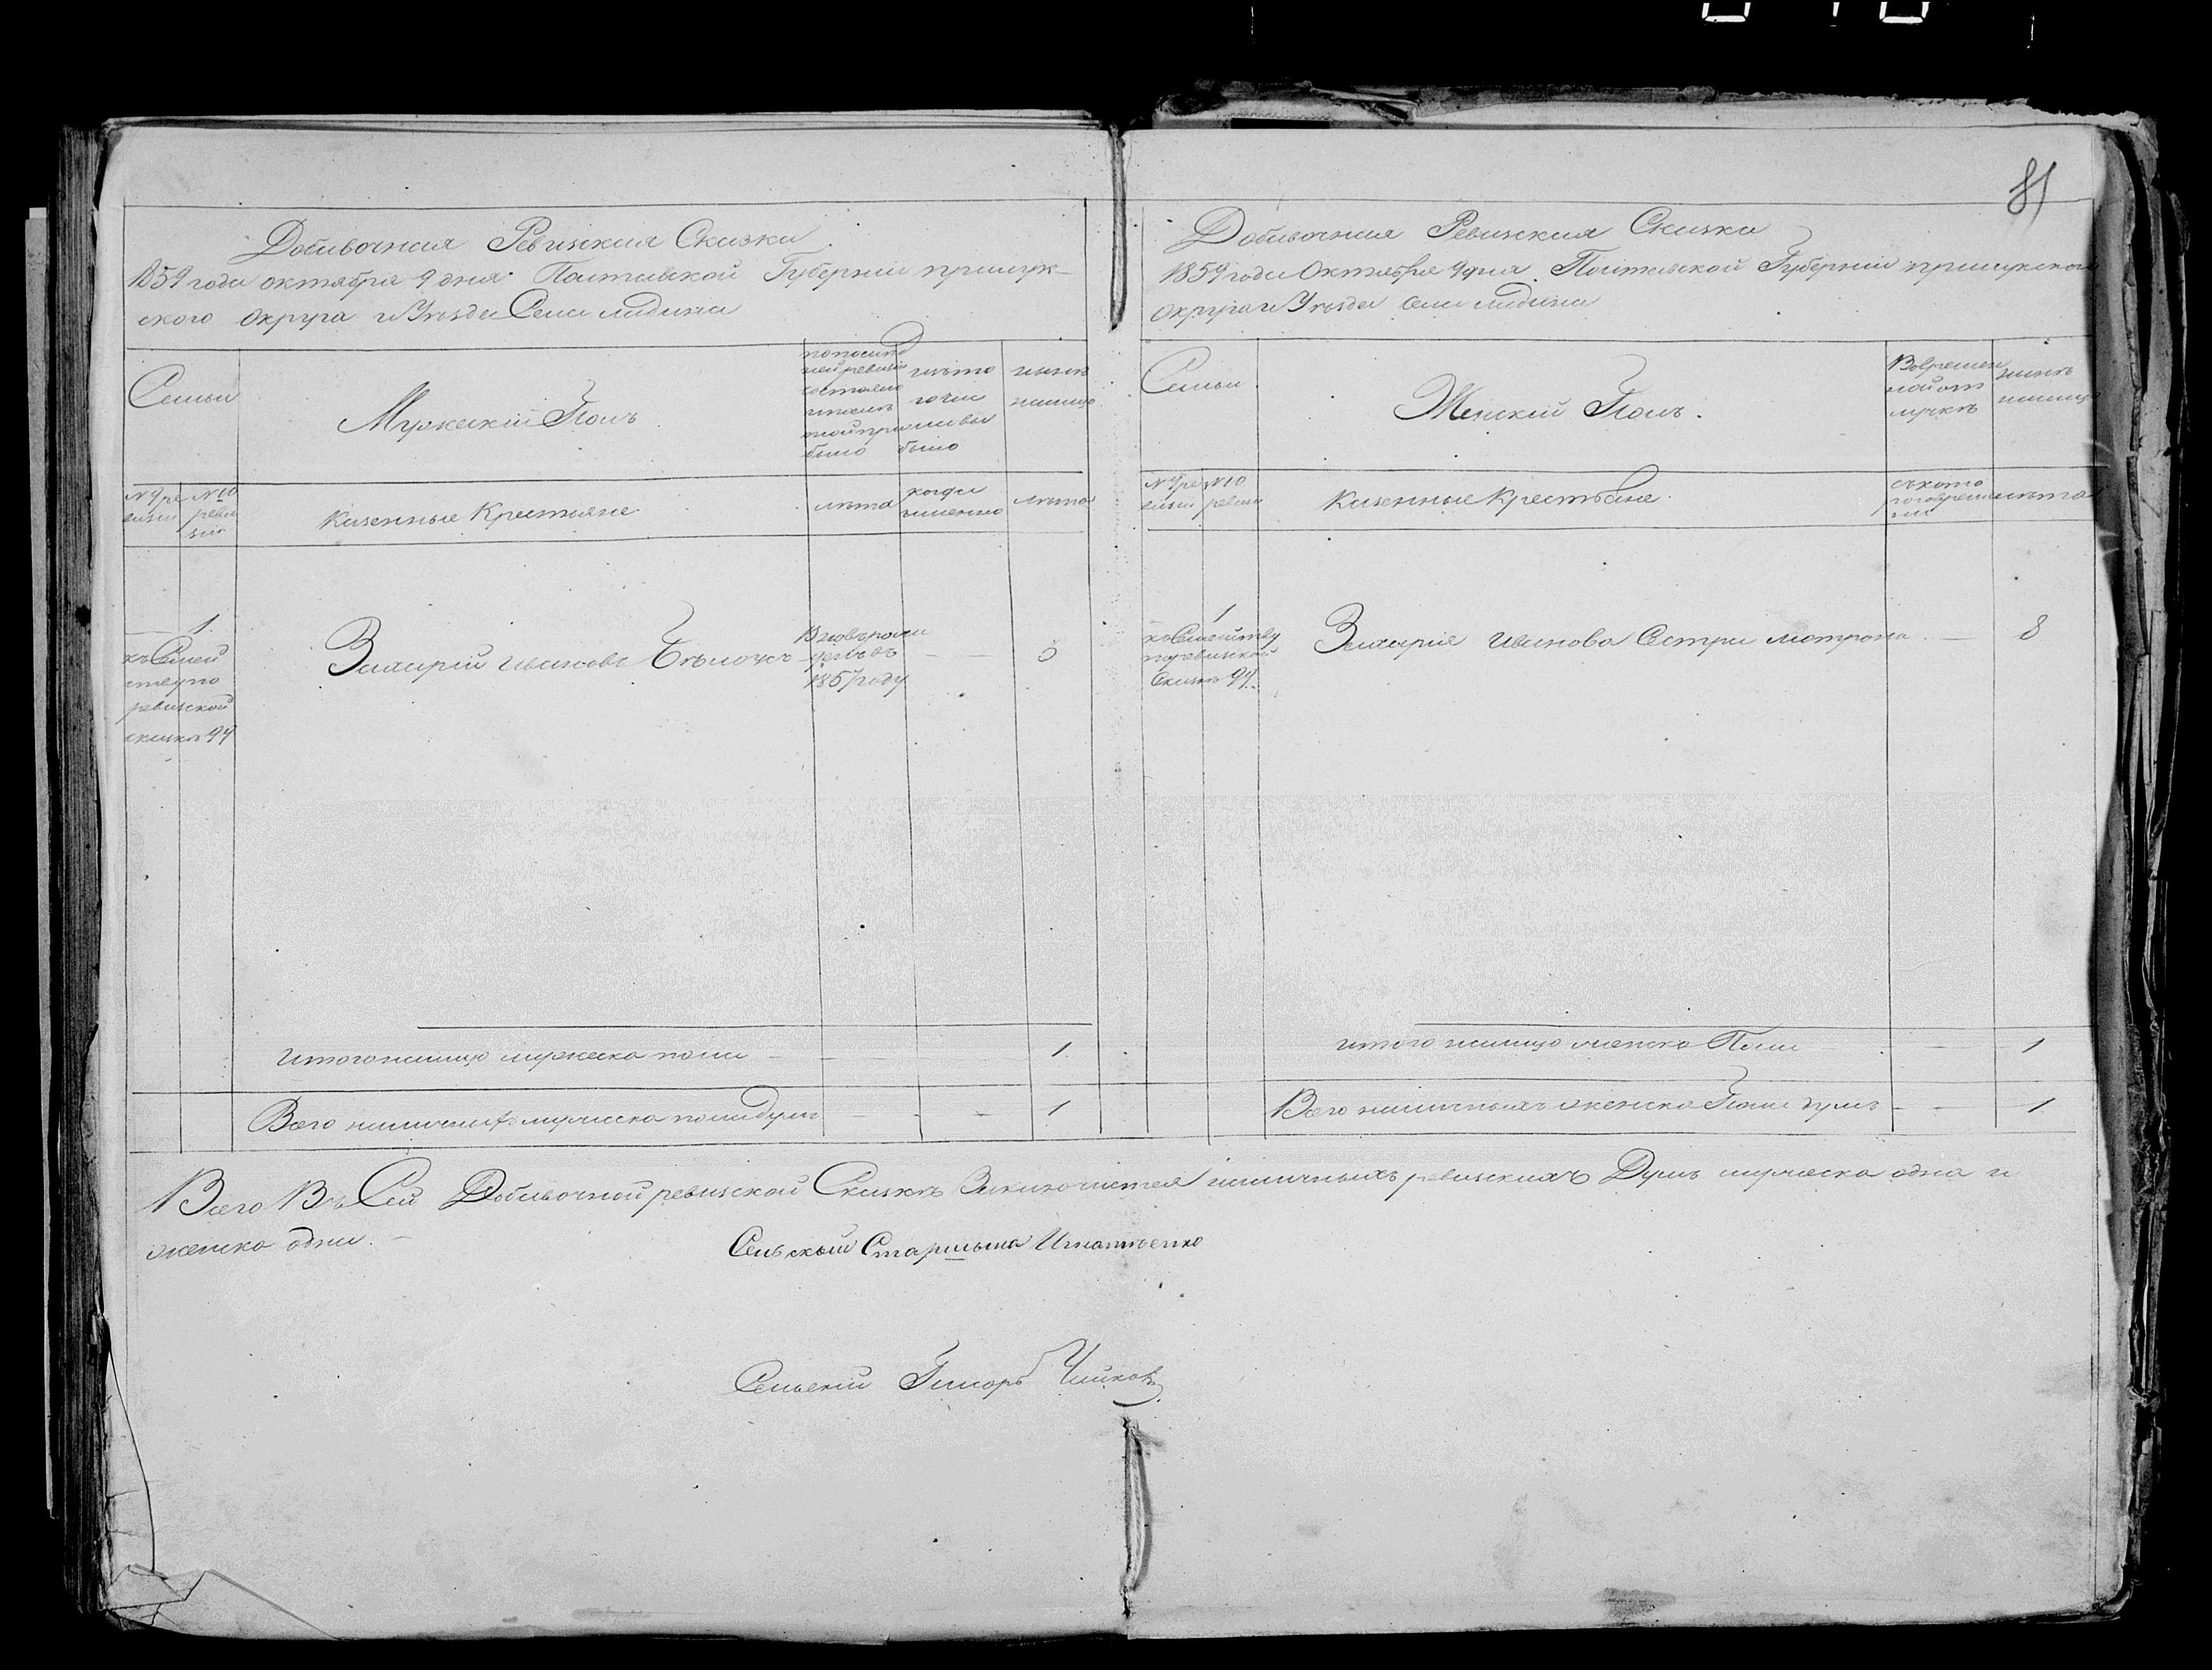 81
Добавочная Ревизская Сказка
1859 года октября 9 дня Полтавской Губерніи прилук-
ского округа и Уезда Села Ладина
Семьи
Мужескій Полъ
по послед
ней ревизіи
состояло
и после
той при
было
изъ того
числа
выбыло
ныне
налицо
№ 9 ре
визіи
№ 10
реви
зіи
Казенные Крестьяне
лета
когда
именно
лета
1
къ Семей
ству по
ревизской
сказке 94
Захарій Ивановъ Белоусъ
1857 году
—
5
Итого налицо мужеска пола — — 1
Всего наличныхъ мужеска пола душъ — — 1
Добавочная Ревизская Сказка
1859 года Октября 9 дня Полтавской Губерніи прилукского
округа и Уезда Села Ладина
Семьи
Женскій Полъ.
Во времен
ной от
лучке
ныне
налицо
№ 9 ре
визіи
№ 10
ревизіи
Казенные Крестьяне
съ кото
рого време
ни
лета
1
къ Семейству
по ревизской
Сказке 94
Захарія Иванова Сестра Мотрона — 8
Итого налицо женска Пола — 1
Всего наличныхъ женска Пола душъ — — 1
Всего Въ Сей Добавочной ревизской Сказке Заключается наличныхъ ревизскихъ Душъ мужеска одна и
женска одна. —
Сельскый Старшына Игнатенко
Сельскій Писарь